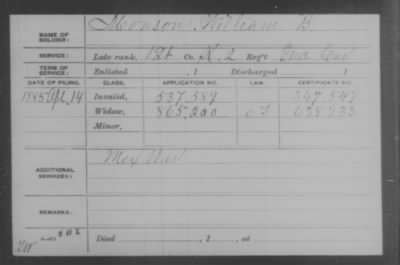 NAME OF SOLDIER: Monson, William B.
SERVICE: Late rank, Co. K, 2 Reg't Ind Cav
TERM OF SERVICE: Enlisted , 1 Discharged , 1
DATE OF FILING. CLASS. APPLICATION NO. LAW CERTIFICATE NO.
1885 14 Invalid, 537.589 347.547
Widow, 865.200 638.933
Minor,
ADDITIONAL SERVICES: Mex War
REMARKS:
Died , 1 , at